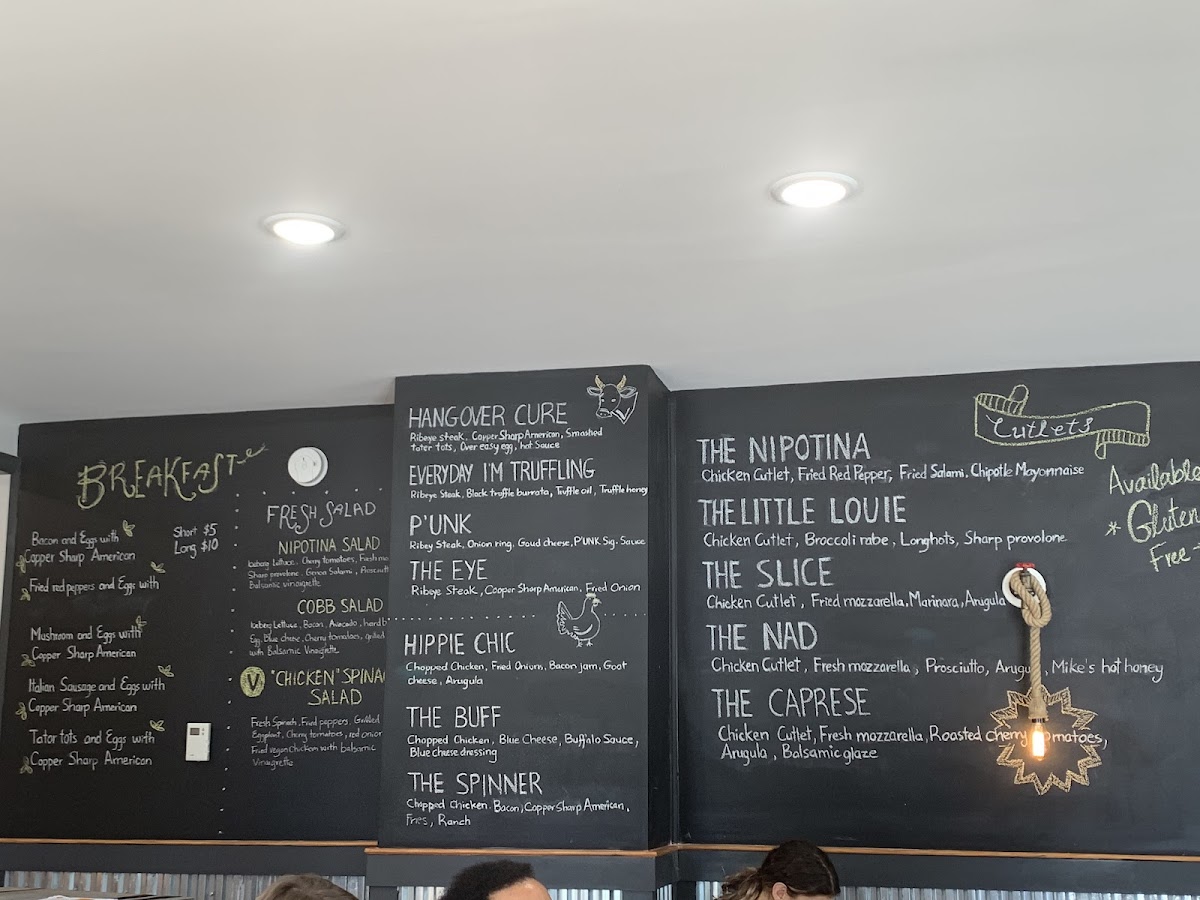 BREAKFAST
Bacon and Eggs with
Copper Sharp American
Short $5
Long $10
Fried red peppers and Eggs with
Mushroom and Eggs with
Copper Sharp American
Italian Sausage and Eggs with
Copper Sharp American
Tator tots and Eggs with
Copper Sharp American
FRESH SALAD
NIPOTINA SALAD
Iceberg Lettuce, Cherry tomatoes, Fresh
Sharp provolone, Genoa Salami,
Balsamic vinaigrette
COBB SALAD
Iceberg Lettuce, Bacon, Avocado,
Egg, Blue cheese, Cherry tomatoes, grilled
with Balsamic Vinaigrette
V "CHICKEN" SPINA
SALAD
Fresh Spinach, Fried peppers, Grilled
Eggplant, Cherry tomatoes, red onion
Fried vegan Chicken with balsamic
Vinaigrette
HANGOVER CURE
Ribeye steak, Copper Sharp American, Smashed
tater tots, Over easy egg, hot Sauce
EVERYDAY I'M TRUFFLING
Ribeye Steak, Black truffle burrata, Truffle oil, Truffle honey
P'UNK
Ribey Steak, Onion ring, Goud cheese, P'UNK Sig. Sauce
THE EYE
Ribeye Steak, Copper Sharp American, Fried Onion
HIPPIE CHIC
Chopped Chicken, Fried Onions, Bacon jam, Goat
cheese, Arugula
THE BUFF
Chopped Chicken, Blue Cheese, Buffalo Sauce,
Blue cheese dressing
THE SPINNER
Chopped Chicken, Bacon, Copper Sharp American,
Fries, Ranch
Cutlets
THE NIPOTINA
Chicken Cutlet, Fried Red Pepper, Fried Salami, Chipotle Mayonnaise
THE LITTLE LOUIE
Chicken Cutlet, Broccoli rabe, Longhots, Sharp provolone
THE SLICE
Chicken Cutlet, Fried mozzarella, Marinara, Arugula
THE NAD
Chicken Cutlet, Fresh mozzarella, Prosciutto, Arugu, Mike's hot honey
THE CAPRESE
Chicken Cutlet, Fresh mozzarella, Roasted cherry omatoes,
Arugula, Balsamic glaze
Available
* Gluten
Free